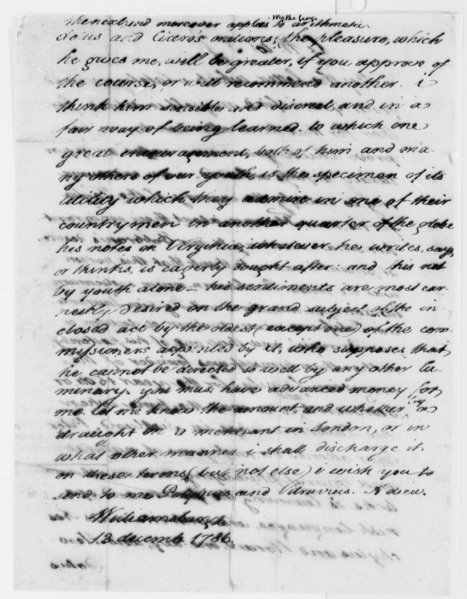 the next and moreover applies to arithmetic
and Cicero's orations; the pleasure, which
he gives me, will be greater, if you approve of
the course, or will recommend another. i
think him sensible and discreet, and in a
fair way of being learned. to which one
great encouragement, both of him and ma-
ny others of our youth is the specimen of its
utility which they admire in one of their
countrymen in another quarter of the globe
his notes on Virginia. whatever he writes, says,
or thinks, is eagerly sought after. and this not
by youth alone— his sentiments are most ear-
nestly desired on the grand subject of the in
closed act by the oldest (except one) of the com-
missioners appointed by it, who supposes that,
he cannot be directed so well by any other lu-
minary. you must have advanced money for
me. let me know the amount, and whether by a
draught on a merchant in London, or in
what other manner i shall discharge it.
on these terms (but not else) i wish you to
send to me Polybius and Vitruvius. Adieu.
Williamsburgh
13 decemb. 1786.